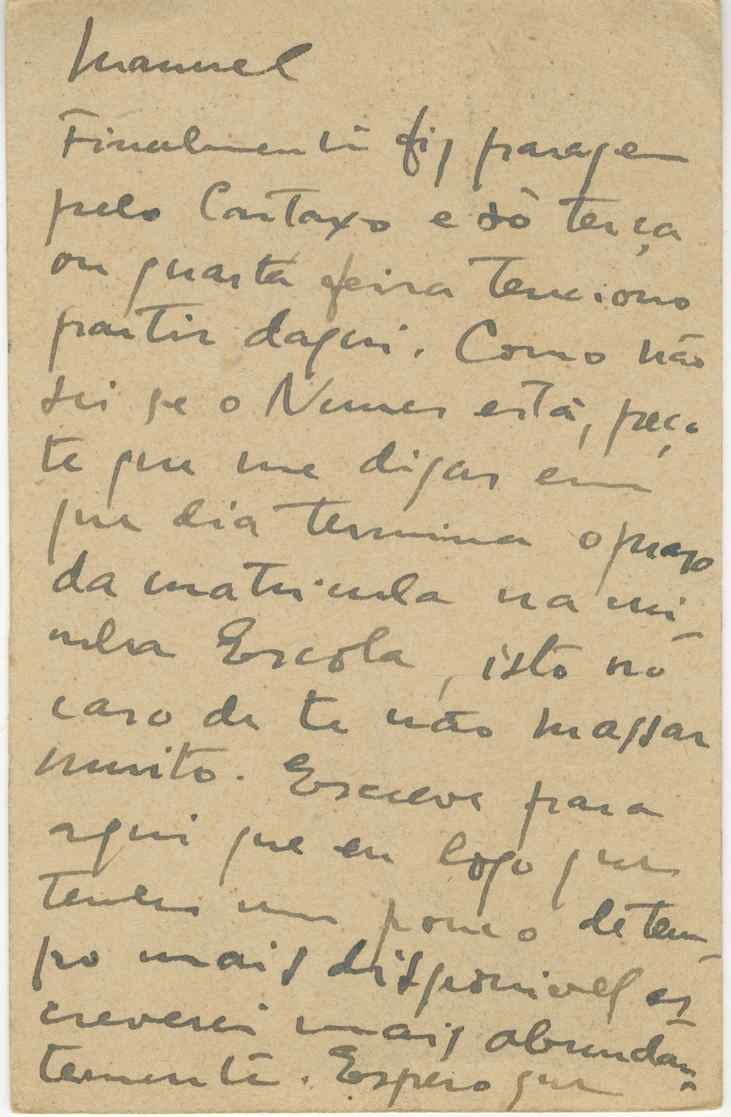 Manuel
Finalmente fiz paragem
pelo Cartaxo e só terça
ou quarta feira tenciono
partir daqui. Como não
sei se o Nunes está, peço
te que me digas em
que dia termina o prazo
da matricula na mi-
nha Escola, isto no
caso de te não massar
muito. Escreve para
aqui que eu logo que
tenha um pouco de tem-
po mais disponivel es
creverei mais abundan-
temente. Espero que